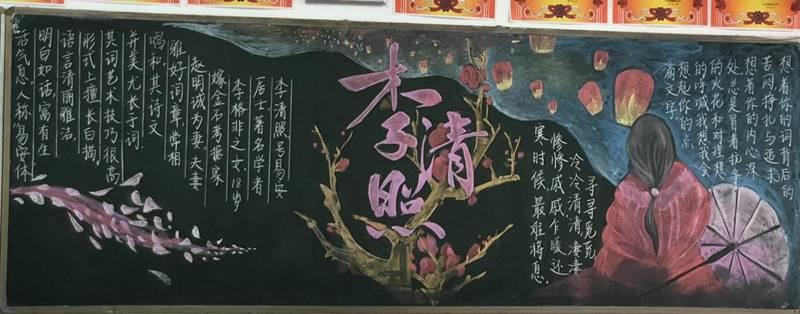 想着你的词背后的
苦闷挣扎与追求
想着你的内心深
处总是冒着
的火花和对理想
的呼喊我想我会
想起你的点
文字
寻寻觅觅
冷冷清清凄凄
惨惨戚戚乍暖还
寒时候最难将息.
李清照
李清照号易安
居士著名学者
李格非之女.18岁
嫁金石考据家
赵明诚为妻.夫妻
雅好词章,常相
唱和.其诗文
并美尤长于词.
其词艺术技巧很高
形式上擅长白描
语言清丽雅洁.
明白如话,富有生
活气息人称"易安体"